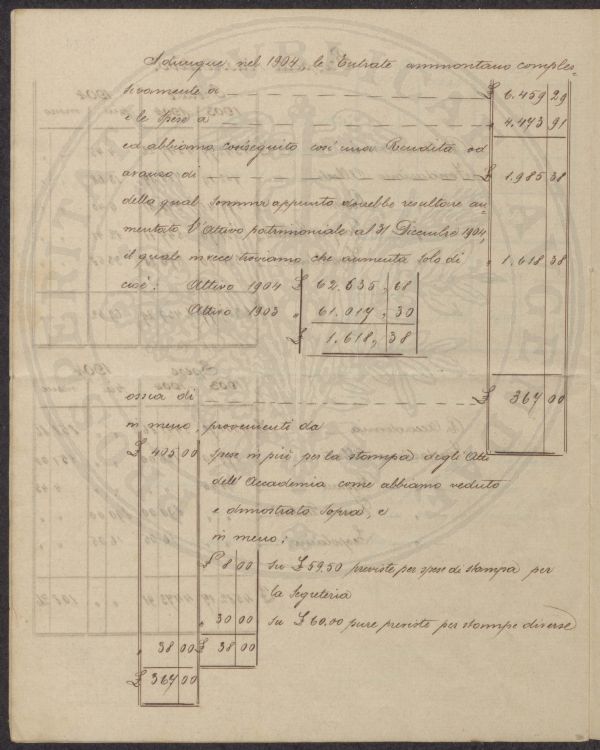 Adunque nel 1904 le Entrate ammontano comples=
sivamente a — £ 6.459 29
e le Spese a — " 4.473 91
ed abbiamo conseguito così una Rendita od
avanzo di — £ 1.985 38
della qual somma appunto dovrebbe resultare au=
mentato l'Attivo patrimoniale al 31 Dicembre 1904,
il quale invece troviamo che aumenta solo di " 1.618 38
cioè: Attivo 1904 £ 62.635, 68
Attivo 1903 " 61.017, 30
£ 1.618, 38
ossia di — £ 367 00
in meno, provenienti da
£ 405 00 Spese in più per la stampa degli Atti
dell'Accademia come abbiamo veduto
e dimostrato sopra, e
in meno:
£ 8 00 su £ 59.50 previste per spese di stampa per
la Segreteria
" 30 00 su £ 60,00 pure previste per stampe diverse
" 38 00 £ 38 00
£ 367 00